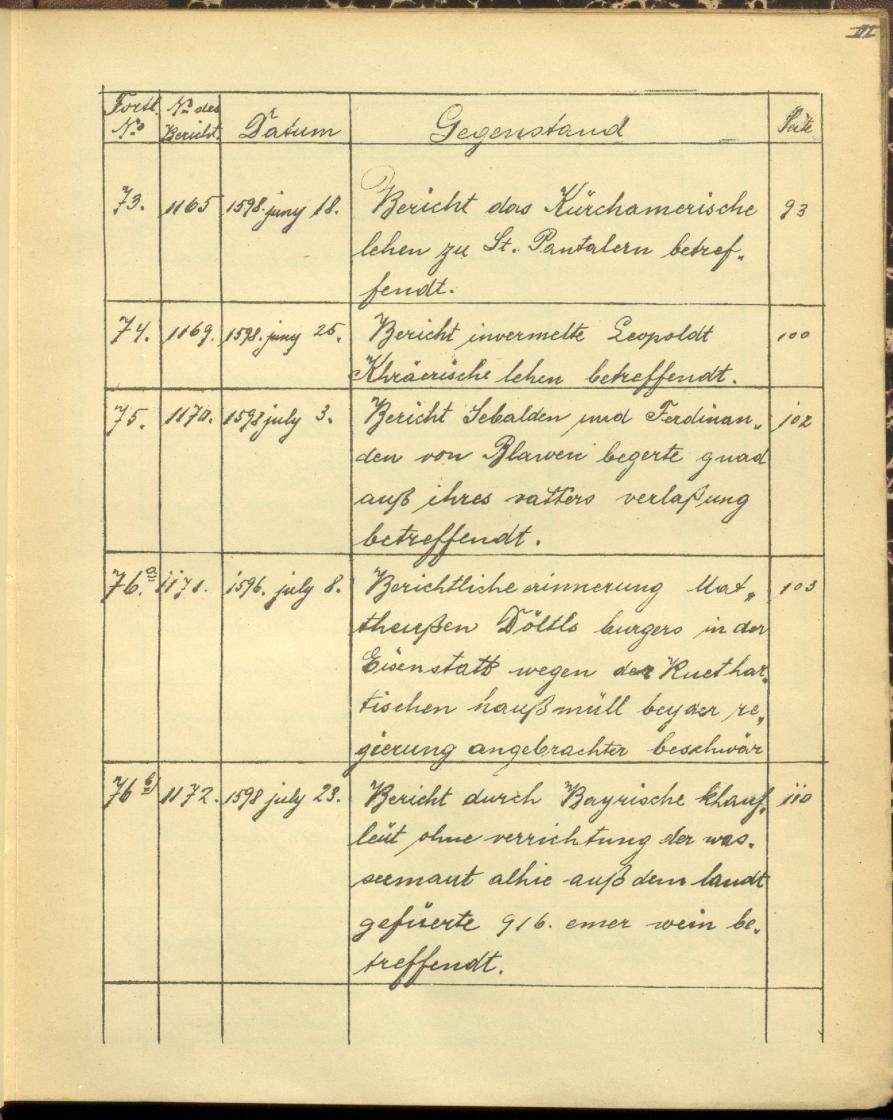 III
Fortl. No. des
No Bericht. Datum Gegenstand Seite
73. 1165 1598. juny 18. Bericht das Kürchamerische 93
lehen zu St. Pantalern betref„
fendt.
74. 1169. 1598. juny 25. Bericht invermelte Leopoldt 100
Khräerische lehen betreffendt.
75. 1170. 1598 july 3. Bericht Sebalden und Ferdinan„ 102
den von Blawen begerte gnad
auß ihres vatters verlaßung
betreffendt.
76.a 1171. 1596. july 8. Berichtliche erinnerung Mat„ 103
theußen Döltls burgers in der
Eisenstatt wegen der Ruethar„
tischen haußmüll bey der re„
gierung angebrachter beschwär
76 b) 1172. 1598 july 23. Bericht durch Bayrische khauf„ 110
leüt ohne verrichtung der was„
seemaut alhie auß dem landt
gefüerte 916. emer wein be„
treffendt.